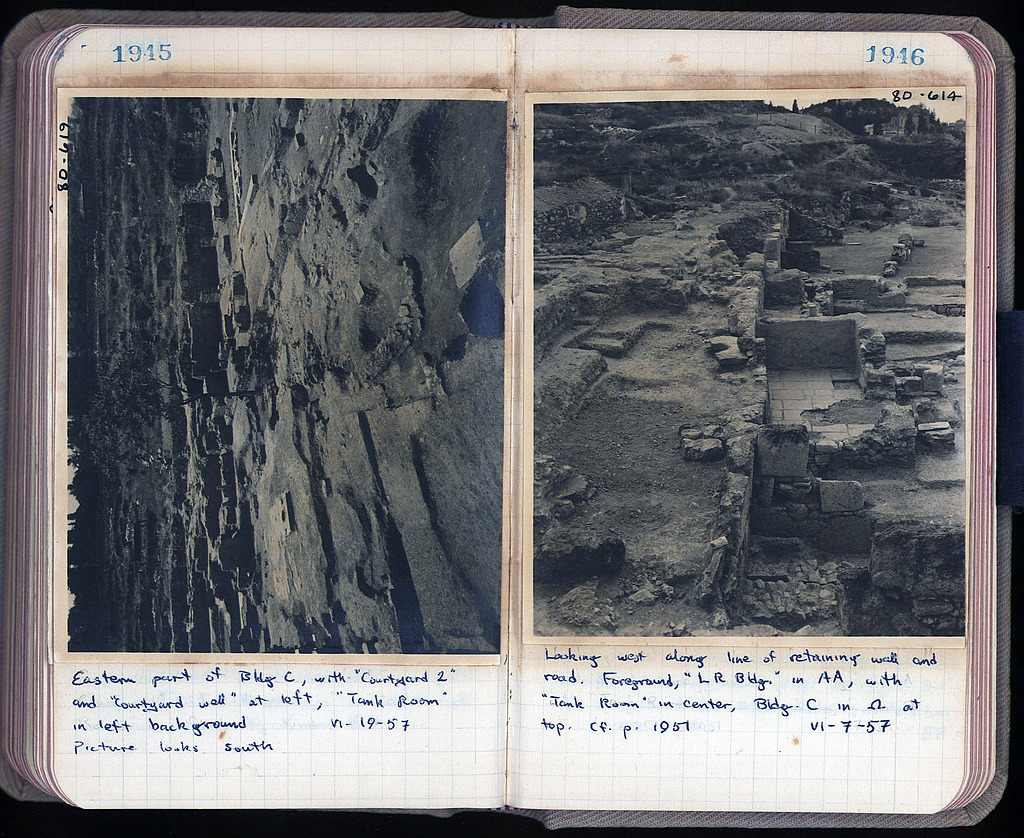 1945
80-619
Eastern part of Bldg C, with "Courtyard 2"
and "courtyard well" at left, "Tank Room"
in left background VI-19-57
Picture looks south
1946
80-614
Looking west along line of retaining wall and
road. Foreground, "LR Bldg." in AA, with
"Tank Room" in center, Bldg. C in Ω at
top. Cf. p. 1951 VI-7-57